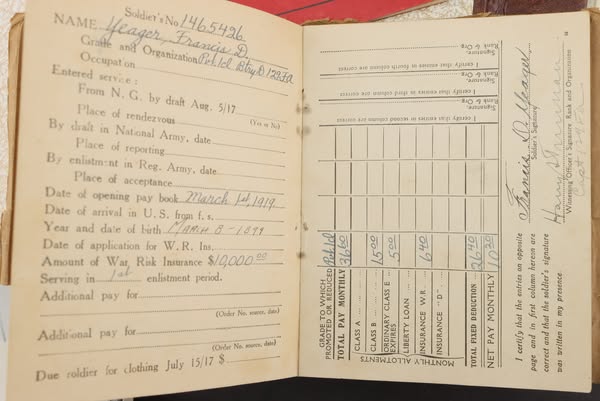 Soldier's No 1465426
NAME Yeager, Francis D.
Grade and Organization Pvt. 1cl Btry D 129 F.A.
Occupation
Entered service:
From N. G. by draft Aug. 5/17
(Yes or No)
Place of rendezvous
By draft in National Army, date
Place of reporting
By enlistment in Reg. Army, date
Place of acceptance
Date of opening pay book March 1st, 1919
Date of arrival in U. S. from f. s.
Year and date of birth MARCH 8 - 1899
Date of application for W. R. Ins.
Amount of War Risk Insurance $10,000.00
Serving in 1st enlistment period.
Additional pay for
(Order No. source, date)
Additional pay for
(Order No. source, date)
Due soldier for clothing July 15/17 $
GRADE TO WHICH PROMOTED OR REDUCED Pvt 1cl
TOTAL PAY MONTHLY 36 60
MONTHLY ALLOTMENTS
CLASS A
CLASS B 15 00
ORDINARY CLASS E 5 00
EXPIRES
LIBERTY LOAN
INSURANCE W. R. 6 40
INSURANCE "D"
TOTAL FIXED DEDUCTION 26 40
NET PAY MONTHLY 10 20
I certify that entries in second column are correct
Signature,
Rank & Org.
I certify that entries in third column are correct
Signature,
Rank & Org.
I certify that entries in fourth column are correct
Signature,
Rank & Org.
I certify that the entries on opposite
page and in first column herein are
correct and that the soldier's signature
was written in my presence.
Francis D. Yeager
Soldier's Signature
Harry S Truman
Capt 129 F A
Witnessing Officer's Signature Rank and Organization